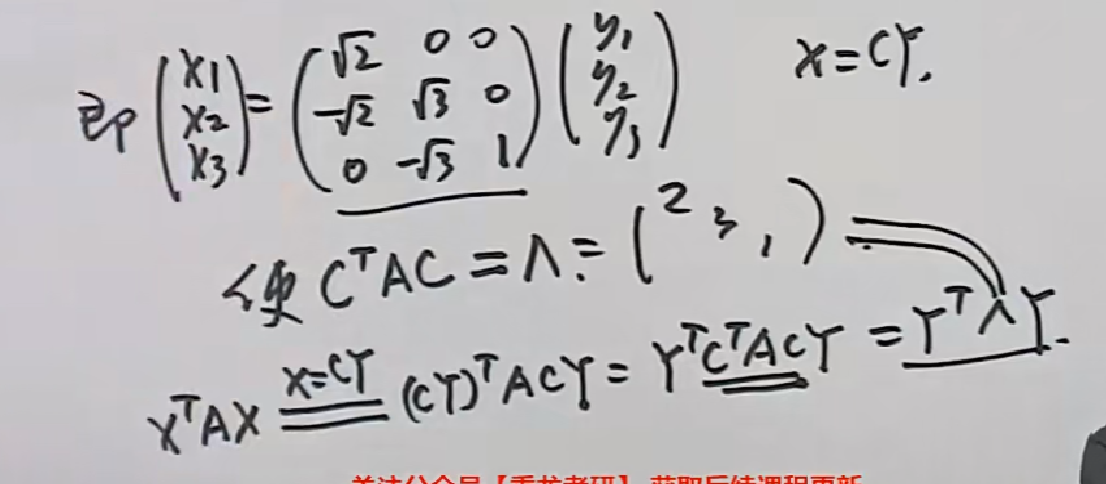 即 (x1 x2 x3) = (√2 0 0 -√2 √3 0 0 -√3 1) (y1 y2 y3) x=CY.
使 CᵀAC = Λ = (2 3 1)
xᵀAX x=CY (CY)ᵀACY = YᵀCᵀACY = YᵀΛY.